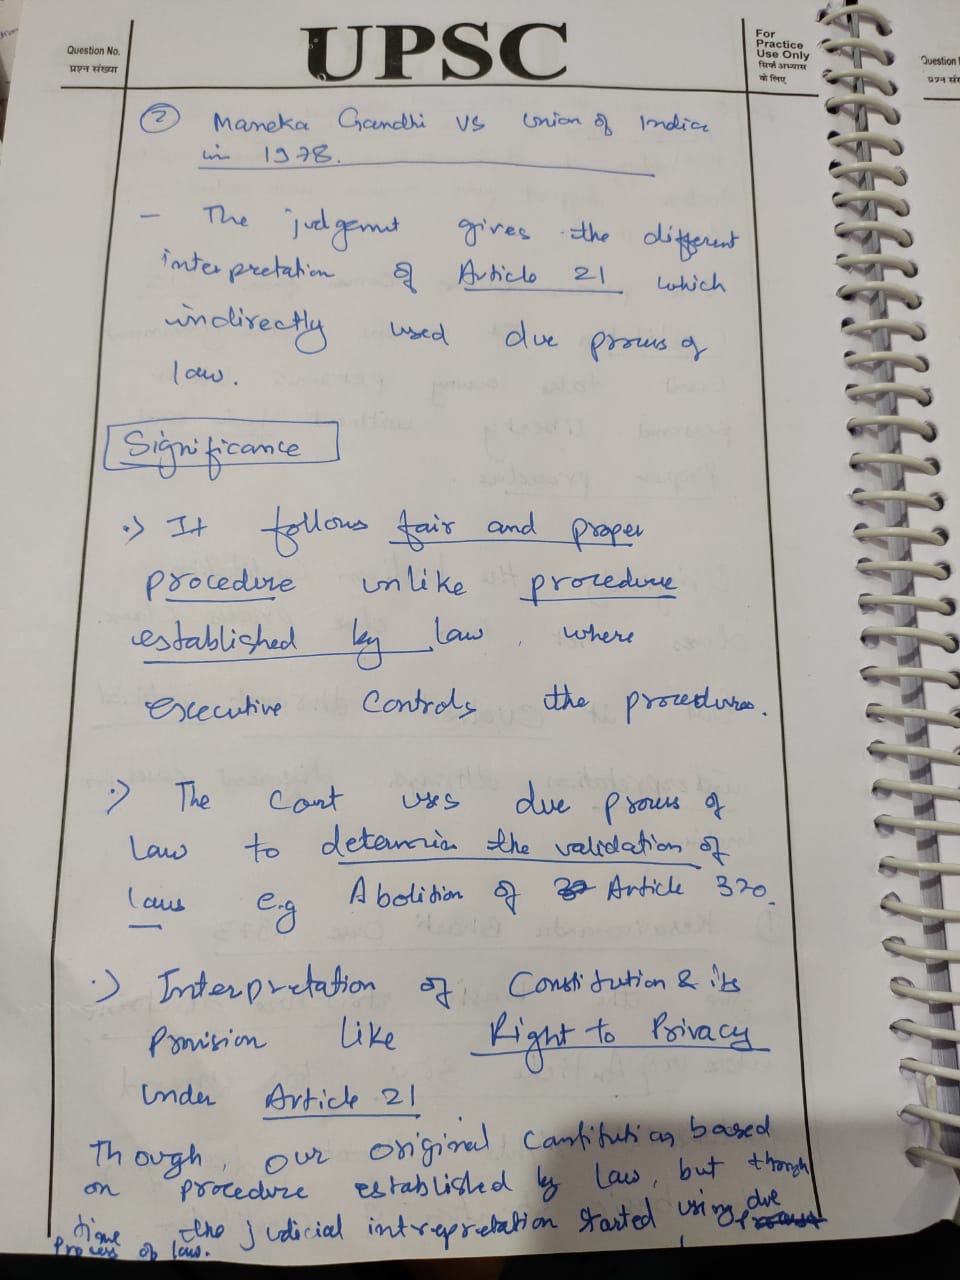 Question No.
प्रश्न संख्या
UPSC
For
Practice
Use Only
सिर्फ अभ्यास
के लिए
Question
प्रश्न सं
② Maneka Gandhi vs Union of India
in 1978.
- The judgemnt gives the different
interpretation of Article 21 which
indirectly used due process of
law.
Significance
It follows fair and proper
procedure unlike procedure
established by law, where
executive controls the procedures.
The Court uses due process of
law to determine the validation of
laws e.g Abolition of Article 370.
Interpretation of Constitution & its
Provision like Right to Privacy
under Article 21
Though, our original constitution based
on procedure established by law, but through
time the judicial intrepretation started using due
process of law.